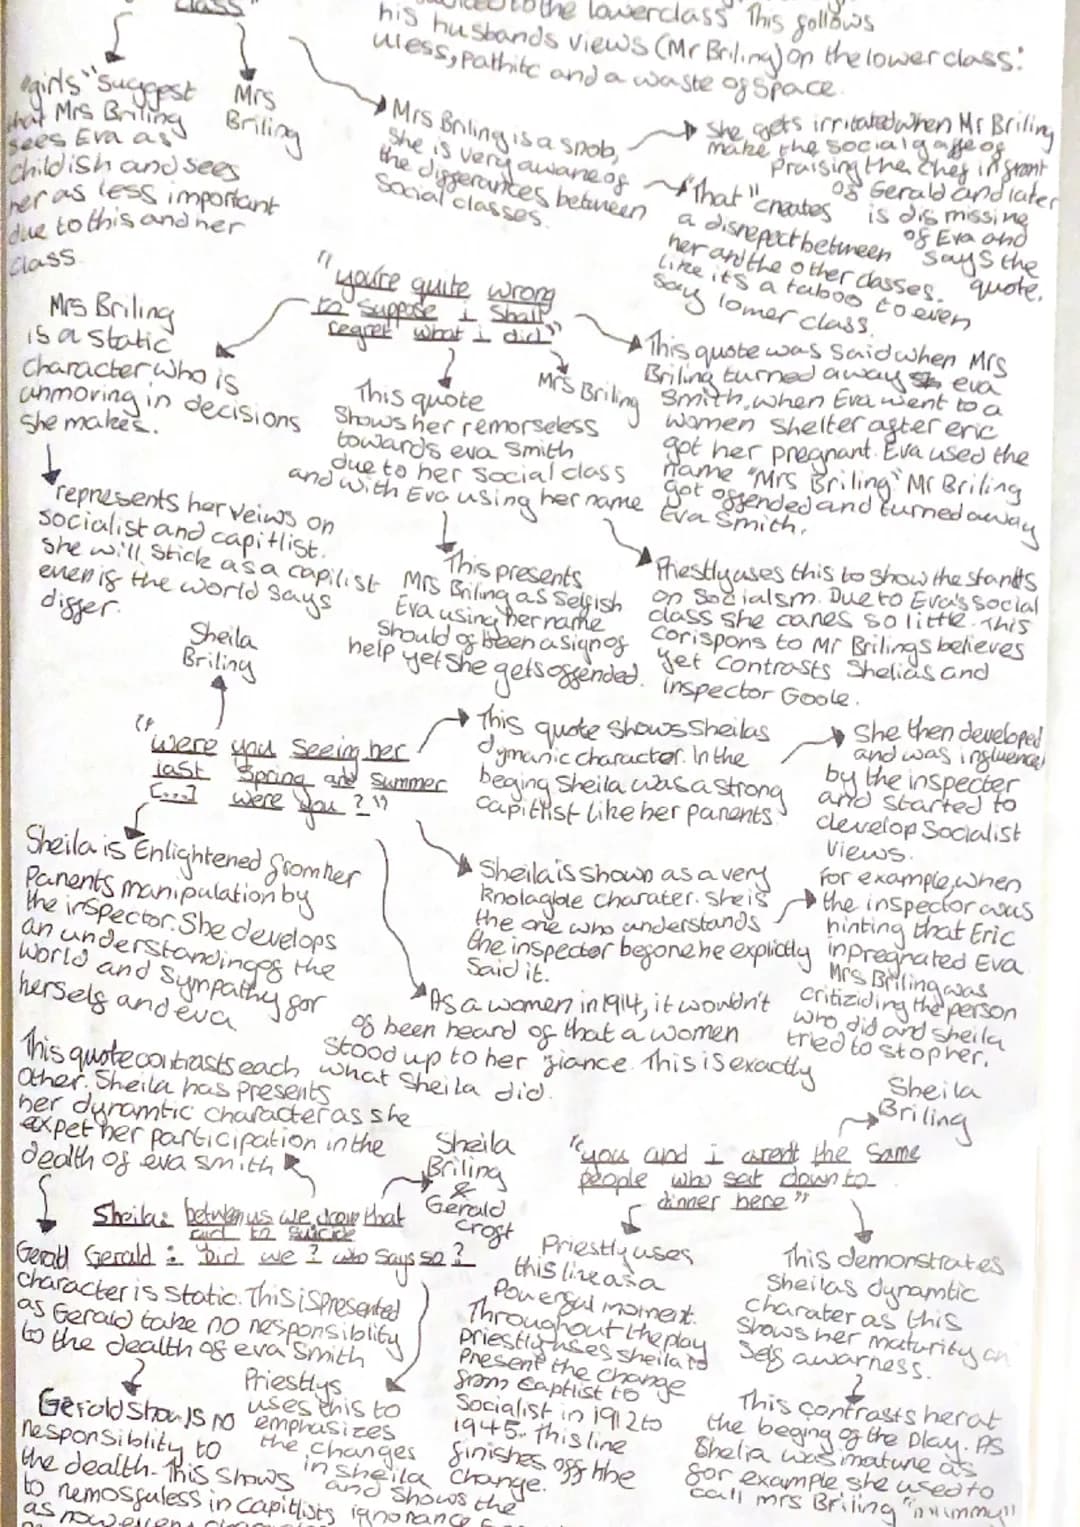 class"
to the lowerclass" This follows
his husbands views (Mr Briling) on the lower class:
uless, pathitc and a waste of space.
"girls" suggest
that Mrs Briling
sees Eva as
childish and sees
her as less important
due to this and her
class.
Mrs
Briling
Mrs Briling is a snob,
she is very aware of
the differances between
Social classes.
She gets irritated when Mr Briling
make the social gaffe of
Praising the chef infront
of Gerald and later
is dismissing
of Eva and
says the
quote.
"That" creates
a disrepect between
her and the other classes.
like it's a taboo to even
say lower class.
"you're quite wrong
to suppose i shall
regret what i did"
Mrs Briling
is a static
character who is
unmoving in decisions
she makes.
represents her veiws on
socialist and capitlist.
she will stick as a capilist
even if the world says
differ.
This quote
Shows her remorseless
towards eva Smith
due to her social class
and with Eva using her name
Mrs Briling
This quote was said when Mrs
Briling turned away eva
Smith, when Eva went to a
women shelter after eric
got her pregnant. Eva used the
name "Mrs Briling" Mr Briling
got offended and turned away
Eva Smith.
This presents
Mrs Briling as selfish
Eva using her name
Should of been a sign of
help yet she gets offended.
Priestly uses this to show the
on Socialsm. Due to Eva's social
class she cares so little. This
corispons to Mr Brilings believes
yet contrasts Shelias and
inspector Goole.
Sheila
Briling
"were you seeing her
last Spring and Summer
[...] were you?"
This quote shows Sheilas
dymanic character. In the
beging Sheila was a strong
capitlist like her parents.
She then developed
and was influence
by the inspecter
and started to
develop Socialist
views.
Sheila is Enlightened from her
Parents manipulation by
the inspector. She develops
an understanding of the
world and Sympathy for
herself and eva
Sheila is shown as a very
knolagble charater. she is
the one who understands
the inspector before he explictly
said it.
For example, when
the inspector was
hinting that Eric
inpregnated Eva
Mrs Briling was
critiziding the person
who did and sheila
tried to stop her.
As a women in 1914, it wouldn't
of been heard of that a women
stood up to her fiance. This is exactly
what Sheila did.
This quote contrasts each
other. Sheila has presents
her dynamtic character as she
expet her participation in the
dealth of eva smith
Sheila
Briling
&
Gerald
Croft
Sheila: between us we drove that
girl to suicide
Gerald: Did we? who says so?
Gerald
character is static. This is presented
as Gerald take no responsiblity
to the dealth of eva Smith
Gerald shows no
responsiblity to
the dealth. This shows
to remosfuless in capitlists ignorance
Priestlys
uses this to
emphasizes
the changes
in sheila
and shows the
Sheila
Briling
"you and i arent the same
people who sat down to
dinner here"
Priestly uses
this line as a
Powerful moment.
Throughout the play
priestly uses sheila to
Present the change
from captlist to
Socialist in 1912 to
1945. This line
finishes off the
change.
This demonstrates
Sheilas dynamtic
charater as this
shows her maturity an
self awarness.
This contrasts her at
the beging of the play. As
Shelia was mature as
for example she used to
call mrs Briling "mummy"